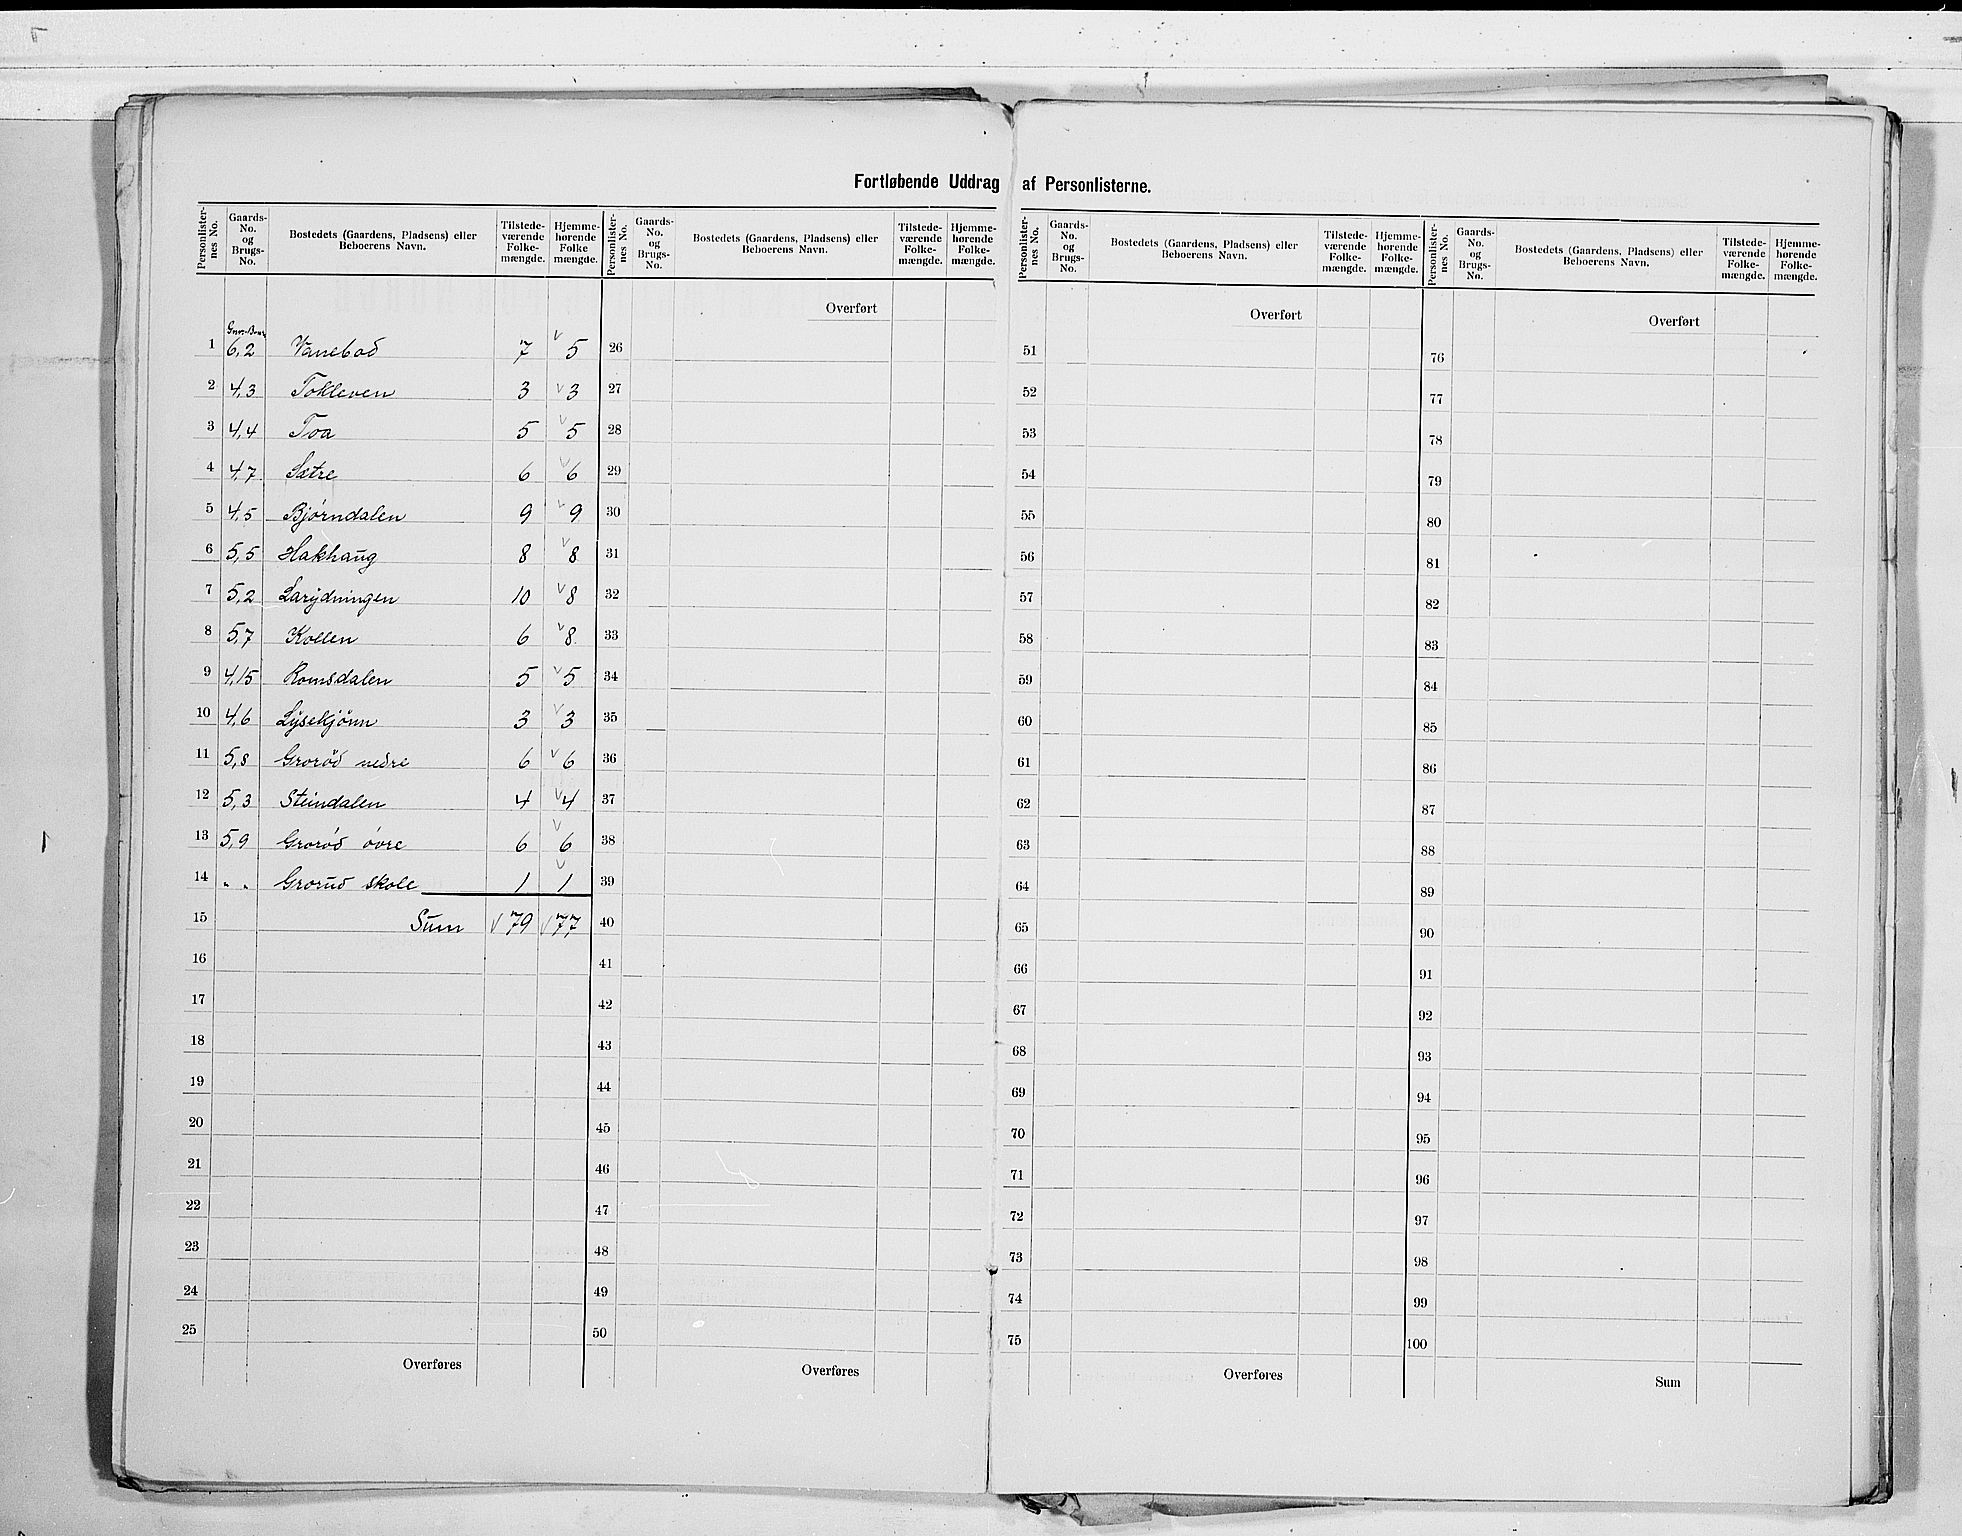 Fortløbende Uddrag af Personlisterne.
Personlister-nes No. Gaards-No. og Brugs-No. Bostedets (Gaardens, Pladsens) eller Beboerens Navn. Tilstede-værende Folke-mængde. Hjemme-hørende Folke mængde. Personlister-nes No. Gaards-No. og Brugs-No. Bostedets (Gaardens, Pladsens) eller Beboerens Navn. Tilstede-værende Folke-mængde. Hjemme-hørende Folke-mængde. Personlister-nes No. Gaards-No. og Brugs-No. Bostedets (Gaardens, Pladsens) eller Beboerens Navn. Tilstede-værende Folke-mængde. Hjemme-hørende Folke-mængde. Personlister-nes No. Gaards-No. og Brugs-No. Bostedets (Gaardens, Pladsens) eller Beboerens Navn. Tilstede-værende Folke-mængde. Hjemme-hørende Folke-mængde.
Overført Overført Overført
1 6,2 Vanebod 7 5 26 51 76
2 4,3 Tokleven 3 3 27 52 77
3 4,4 Toa 5 5 28 53 78
4 4,7 Sætre 6 6 29 54 79
5 4,5 Bjørndalen 9 9 30 55 80
6 5,5 Hakhaug 8 8 31 56 81
7 5,2 Larydningen 10 8 32 57 82
8 5,7 Kollen 6 8 33 58 83
9 4,15 Romsdalen 5 5 34 59 84
10 4,6 Lysekjönn 3 3 35 60 85
11 5,8 Grorød nedre 6 6 36 61 86
12 5,3 Steindalen 4 4 37 62 87
13 5,9 Grorød övre 6 6 38 63 88
14 " " Grorud skole 1 1 39 64 89
15 Sum 79 77 40 65 90
16 41 66 91
17 42 67 92
18 43 68 93
19 44 69 94
20 45 70 95
21 46 71 96
22 47 72 97
23 48 73 98
24 49 74 99
25 50 75 100
Overføres Overføres Overføres Sum